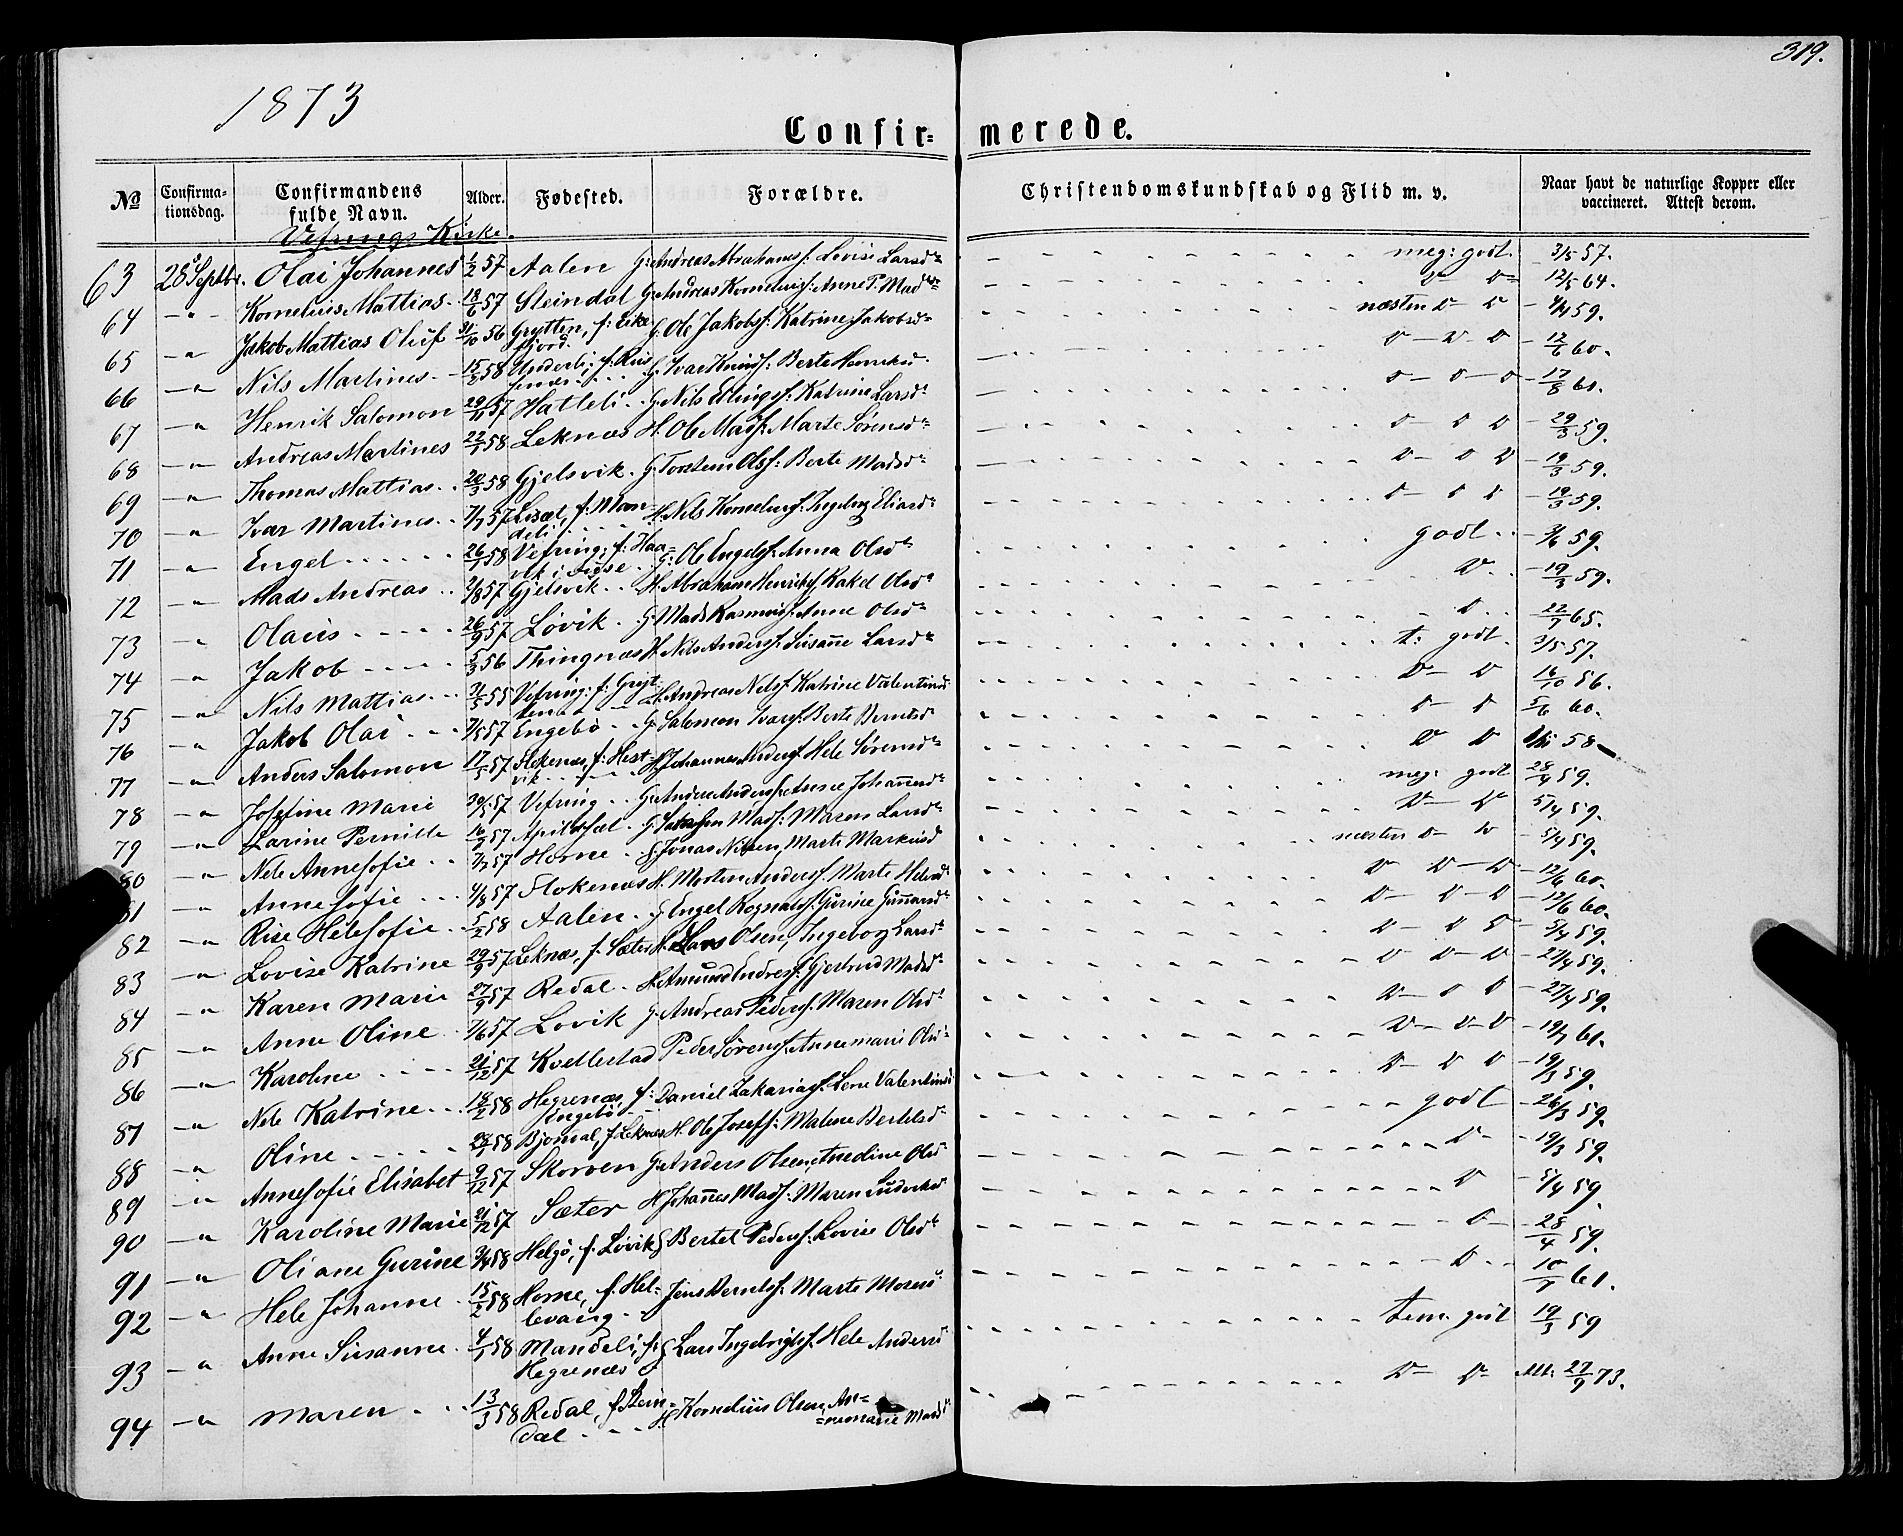 319.
1873
Confir- merede.
№ Confirma-tionsdag. Confirmandens fulde Navn. Alder. Fødested. Forældre. Christendomskundskab og Flid m. v. Naar havt de naturlige Kopper eller vaccineret. Attest derom.
Vefrings Kirke.
63 28 Septbr. Olai Johannes 1/2 57 Aalen G: Andreas Abrahams: Lovise Larsd: meg: godt 3/5 57.
64 -"- Kornelius Mattias 18/6 57 Steindal G: Andreas Kornelius: Anne P. Mad v- v- 12/5 64.
65 -"- Jakob Mattias Oluf 31/10 56 Grytten, f: Eikefjord. G: Ole Jakobs: Katrine Jakobsd: næsten v v 4/4 59.
66 -"- Nils Martines 15/2 58 Underli, f. G: Ivar Knuds: Berte v- v- v 12/6 60.
67 -"- Henrik Salomon 29/11 57 Hatleli G: Nils Erlings: Katrine Larsd: v- v- v 17/8 60.
68 -"- Andreas Martines 22/1 58 Leknæs H. Ole Mads: Marte Sørensd: v- v v 29/3 59.
69 -"- Thomas Mattias 20/3 58 Gjelsvik G: Torstein Ols: Berte Madsd: v- v v 19/3 59.
70 -"- Ivar Martines 7/7 57 Lisæt, f: Mandeli H. Nils Kornelius: Ingeborg Eliasd: v- v v 19/3 59.
71 -"- Engel 26/1 58 Vefring, f: G: Ole Engels: Anna Olsd: godt 3/6 59.
72 -"- Mads Andreas 2/8 57 Gjelsvik H. Abraham Henriks: Rakel Olsd: v. 19/3 59.
73 -"- Olaus 26/9 57 Lovik G: Mads Rasmus: Anne Olsd: v. 22/7 65.
74 -"- Jakob 5/3 56 Thingnæs H. Nils Anders: Susanne Larsd: t: godt 3/5 57.
75 -"- Nils Mattias 2/5 55 Vefring: f: Grytten H. Andreas Nils: Katrine Valentinsd v- v 16/10 56.
76 -"- Jakob Olai 7/5 57 Engebø G: Salomon Ivars: Berte Berntsd: v- v 5/6 60.
77 -"- Anders Salomon 17/5 57 Flekenæs, f: Hestvik H. Johannes Anders: Hele Sørensd: v v 58
78 -"- Josefine Marie 29/5 57 Vefring G: Andreas Anders: Anne Johannesd: meg: godt 28/4 59.
79 -"- Larine Pernille 16/9 57 Apilsæt G: Mads: Maren Larsd: v- v 5/4 59.
80 -"- Nele Annesofie 7/7 57 Horne G Jonas Nilsen, Marte Markusd næsten v v 5/4 59.
81 -"- Annesofie 4/8 57 Flokenæs H. Morten Anders: Marte v v- v 12/6 60.
82 -"- Rise Helesofie 5/2 58 Aalen G Engel Rognalds: Gurine Gunnarsd: v- v- v 12/6 60.
83 -"- Lovise Katrine 29/9 57 Leknæs, f: Sæter H. Lars Olsen, Ingeborg Larsd: v- v v 5/4 59.
84 -"- Karen Marie 27/9 57 Redal H. Amund Endres: Gjertrud Madsd: v v- v 27/4 59.
85 -"- Anne Oline 7/6 57 Lovik G: Andreas Peders: Maren Olsd: v- v v 27/4 59.
86 -"- Karoline 21/12 57 Kvellestad Peder Sørens: Annemarie Olsd: v- v- v 19/7 61.
87 -"- Nele Katrine 18/2 58 Hegrenæs, f: Engebø Daniel Zakarias: Lene Valentinsd v- v v 19/3 59.
88 -"- Oline 58 f. Leknæs H. Ole Josefs: Malene Bertelsd: godt 26/3 59.
89 -"- Annesofie Elisabet 9/12 57 Skorven G: Anders Olsen, Anedine Olsd v- 19/3 59.
90 -"- Karoline Marie 21/12 57 Sæter H Johannes Mads: Maren v 5/4 59.
91 -"- Oliane Gurine 3/4 58 Helgø, f. Lovik G Bertel Peders: Lovise Olsd: v- 28/4 59.
92 -"- Hele Johanne 15/2 58 Horne, f. Hellevang Jens Bernts: Marte v. 10/7 61.
93 -"- Anne Susanne 4/1 58 Mandeli, f: Hegrenæs G Lars Ingebrigts: Hele Andersd tem. godt 19/3 59
94 -"- Maren 13/3 58 Redal, f. Steindal H. Kornelius Olsen, Annemarie Madsd: v- v- Att: 27/9 73.